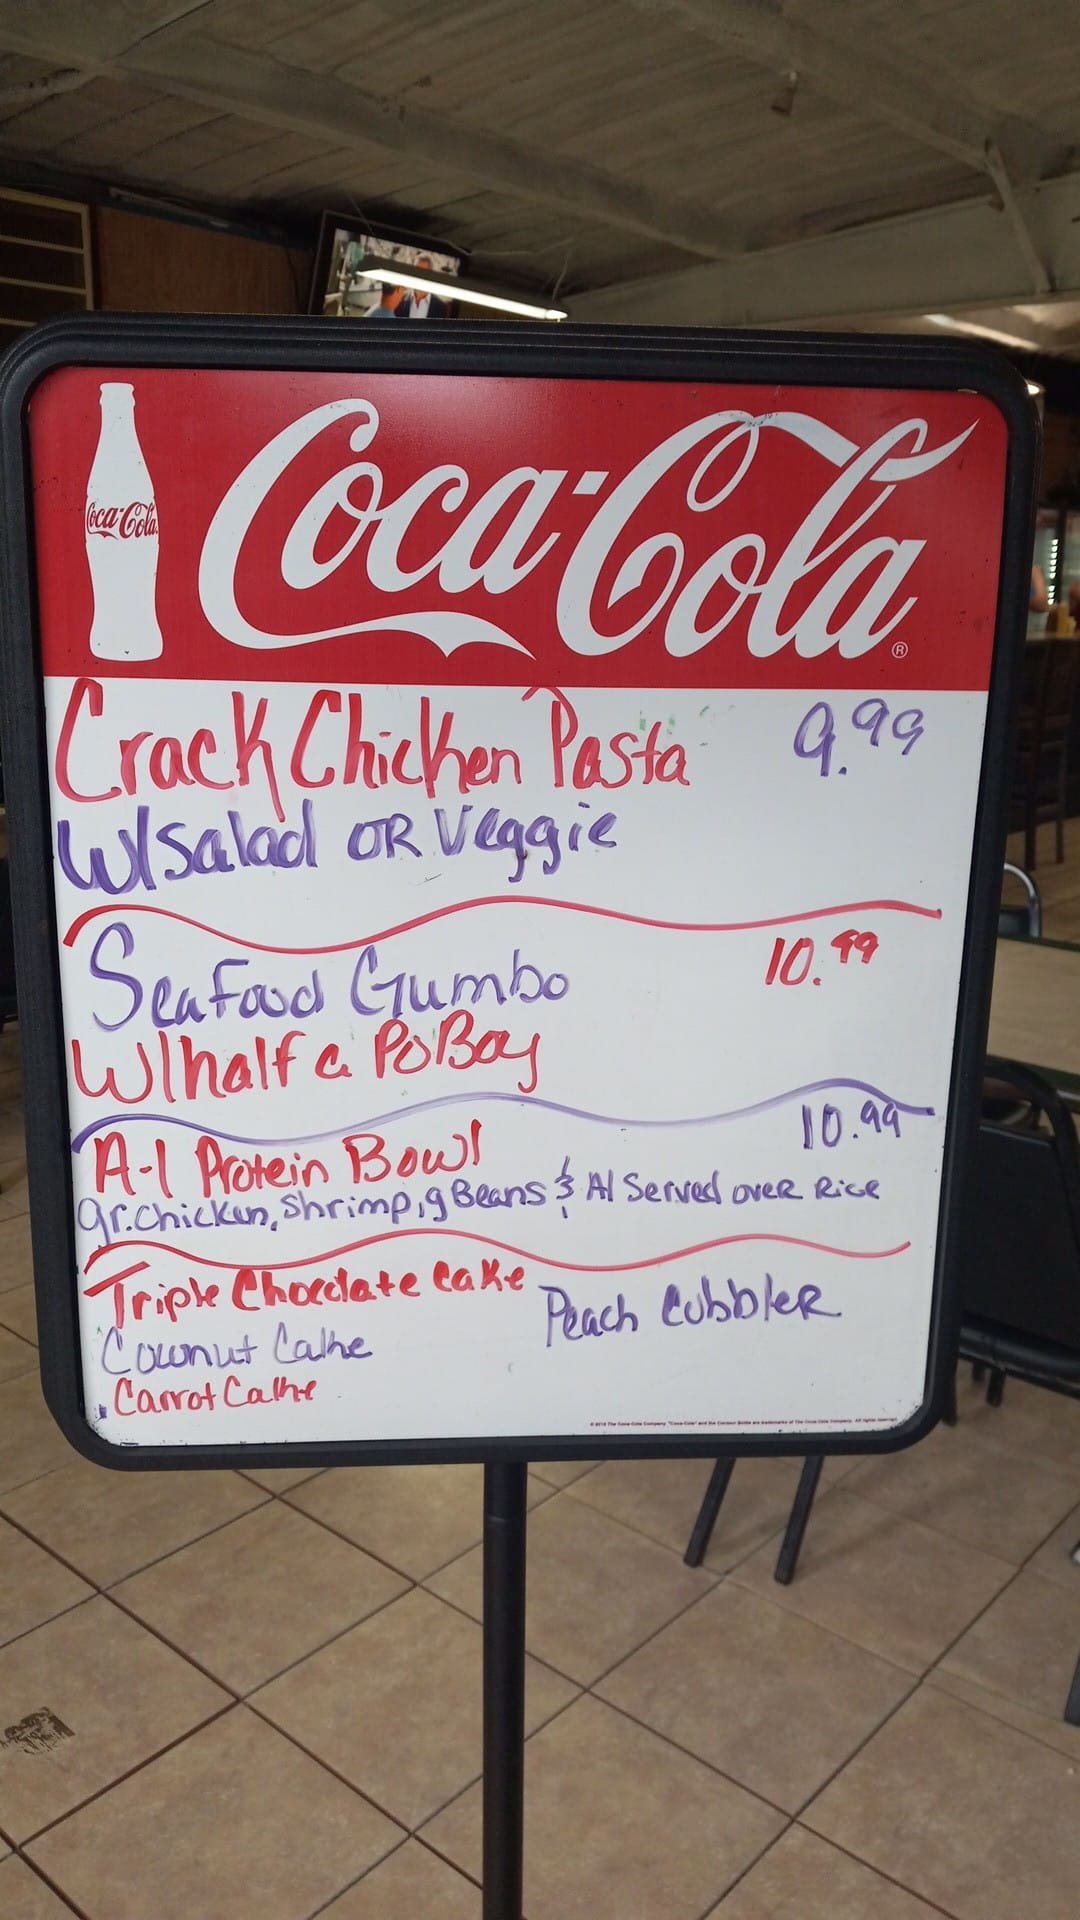 Coca-Cola
Coca-Cola ®
Crack Chicken Pasta 9.99
W/Salad OR Veggie
Seafood Gumbo 10.99
W/half a PoBoy
A-1 Protein Bowl 10.99
gr. Chicken, Shrimp, g Beans & A1 Served over Rice
Triple Chocolate Cake
Peach Cobbler
Coconut Cake
Carrot Cake